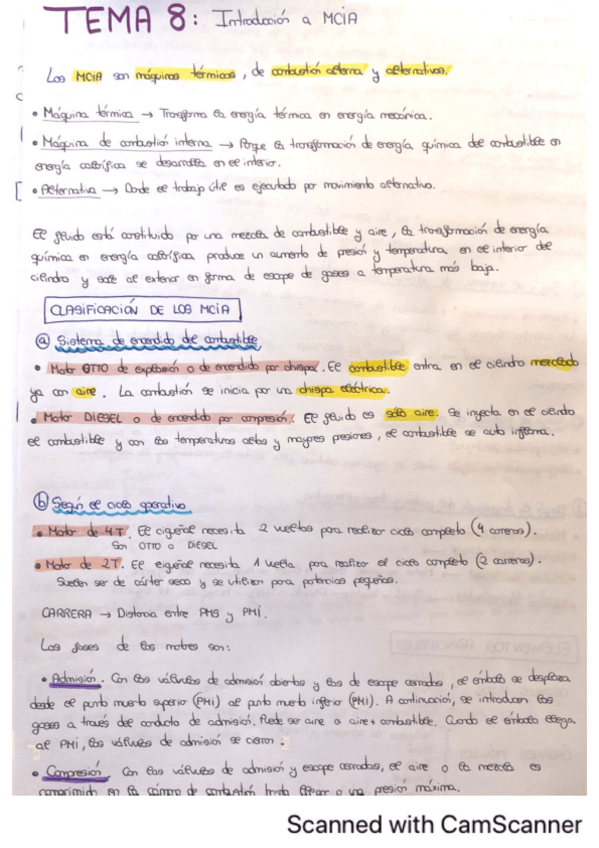 TEMA 8: Introducción a MCIA
Los MCIA son máquinas térmicas, de combustión alterna y alternativos.
• Máquina térmica → Transforma la energía térmica en energía mecánica.
• Máquina de combustión interna → Porque la transformación de energía química del combustible en
energía calorífica se desarrolla en el interior.
• Alternativa → Donde el trabajo útil es ejecutado por movimiento alternativo.
El fluido está constituido por una mezcla de combustible y aire, la transformación de energía
química en energía calorífica produce un aumento de presión y temperatura en el interior del
cilindro y sale al exterior en forma de escape de gases a temperatura más baja.
CLASIFICACIÓN DE LOS MCIA
a) Sistema de encendido de combustible
• Motor OTTO de explosión o de encendido por chispa. El combustible entra en el cilindro mezclado
ya con aire. La combustión se inicia por una chispa eléctrica.
• Motor DIESEL o de encendido por compresión. El fluido es solo aire. Se inyecta en el cilindro
el combustible y con las temperaturas altas y mayores presiones, el combustible se auto inflama.
b) Según el ciclo operativo
• Motor de 4T. El cigüeñal necesita 2 vueltas para realizar ciclo completo (4 carreras).
Son OTTO o DIESEL
• Motor de 2T. El cigüeñal necesita 1 vuelta para realizar el ciclo completo (2 carreras).
Suelen ser de cárter seco y se utilizan para potencias pequeñas.
CARRERA → Distancia entre PMS y PMI.
Las fases de los motores son:
• Admisión. Con las válvulas de admisión abiertas y las de escape cerradas, el émbolo se desplaza
desde el punto muerto superior (PMI) al punto muerto inferior (PMI). A continuación, se introducen los
gases a través del conducto de admisión. Puede ser aire o aire + combustible. Cuando el émbolo llega
al PMI, las válvulas de admisión se cierran.
• Compresión. Con las válvulas de admisión y escape cerradas, el aire o la mezcla es
comprimida en la cámara de combustión hasta llegar a una presión máxima.
Scanned with CamScanner